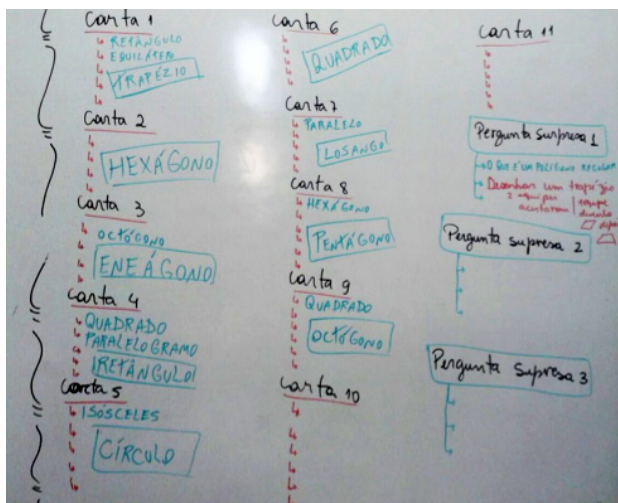 Carta 1
RETÂNGULO
EQUILÁTERO
TRAPÉZIO
Carta 2
HEXÁGONO
Carta 3
OCTÓGONO
ENEÁGONO
Carta 4
QUADRADO
PARALELOGRAMO
RETÂNGULO
Carta 5
ISÓSCELES
CÍRCULO
Carta 6
QUADRADO
Carta 7
PARALELO
LOSANGO
Carta 8
HEXÁGONO
PENTÁGONO
Carta 9
QUADRADO
OCTÓGONO
Carta 10
Carta 11
Pergunta Surpresa 1
O QUE É UM POLÍGONO REGULAR
Desenhar um trapézio
2 equipes
acertaram
Pergunta Supresa 2
Pergunta Supresa 3